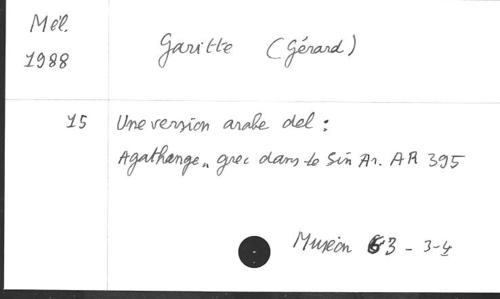 Mél.
1988
Garitte (Gérard)
15 Une version arabe del :
Agathange,, grec dans le Sin Ar. AR 395
Muséon 63 - 3-4